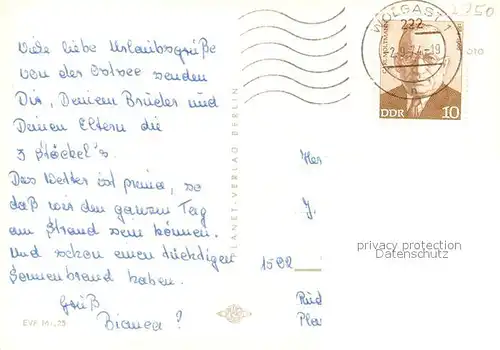 Viele liebe Urlaubsgrüße
von der Ostsee senden
Dir, Deinem Bruder und
Deinen Eltern die
3 Stöckel's.
Das Wetter ist prima, so
daß wir den ganzen Tag
am Strand sein können.
Und schon einen tüchtigen
Sonnenbrand haben.
Gruß
Bianca?
EVP M -,25
PLANET-VERLAG BERLIN
WOLGAST
222
2.9.74-19
n
DDR 10
2250
010
Her
J.
1502
Rud
Pla
privacy protection
Datenschutz